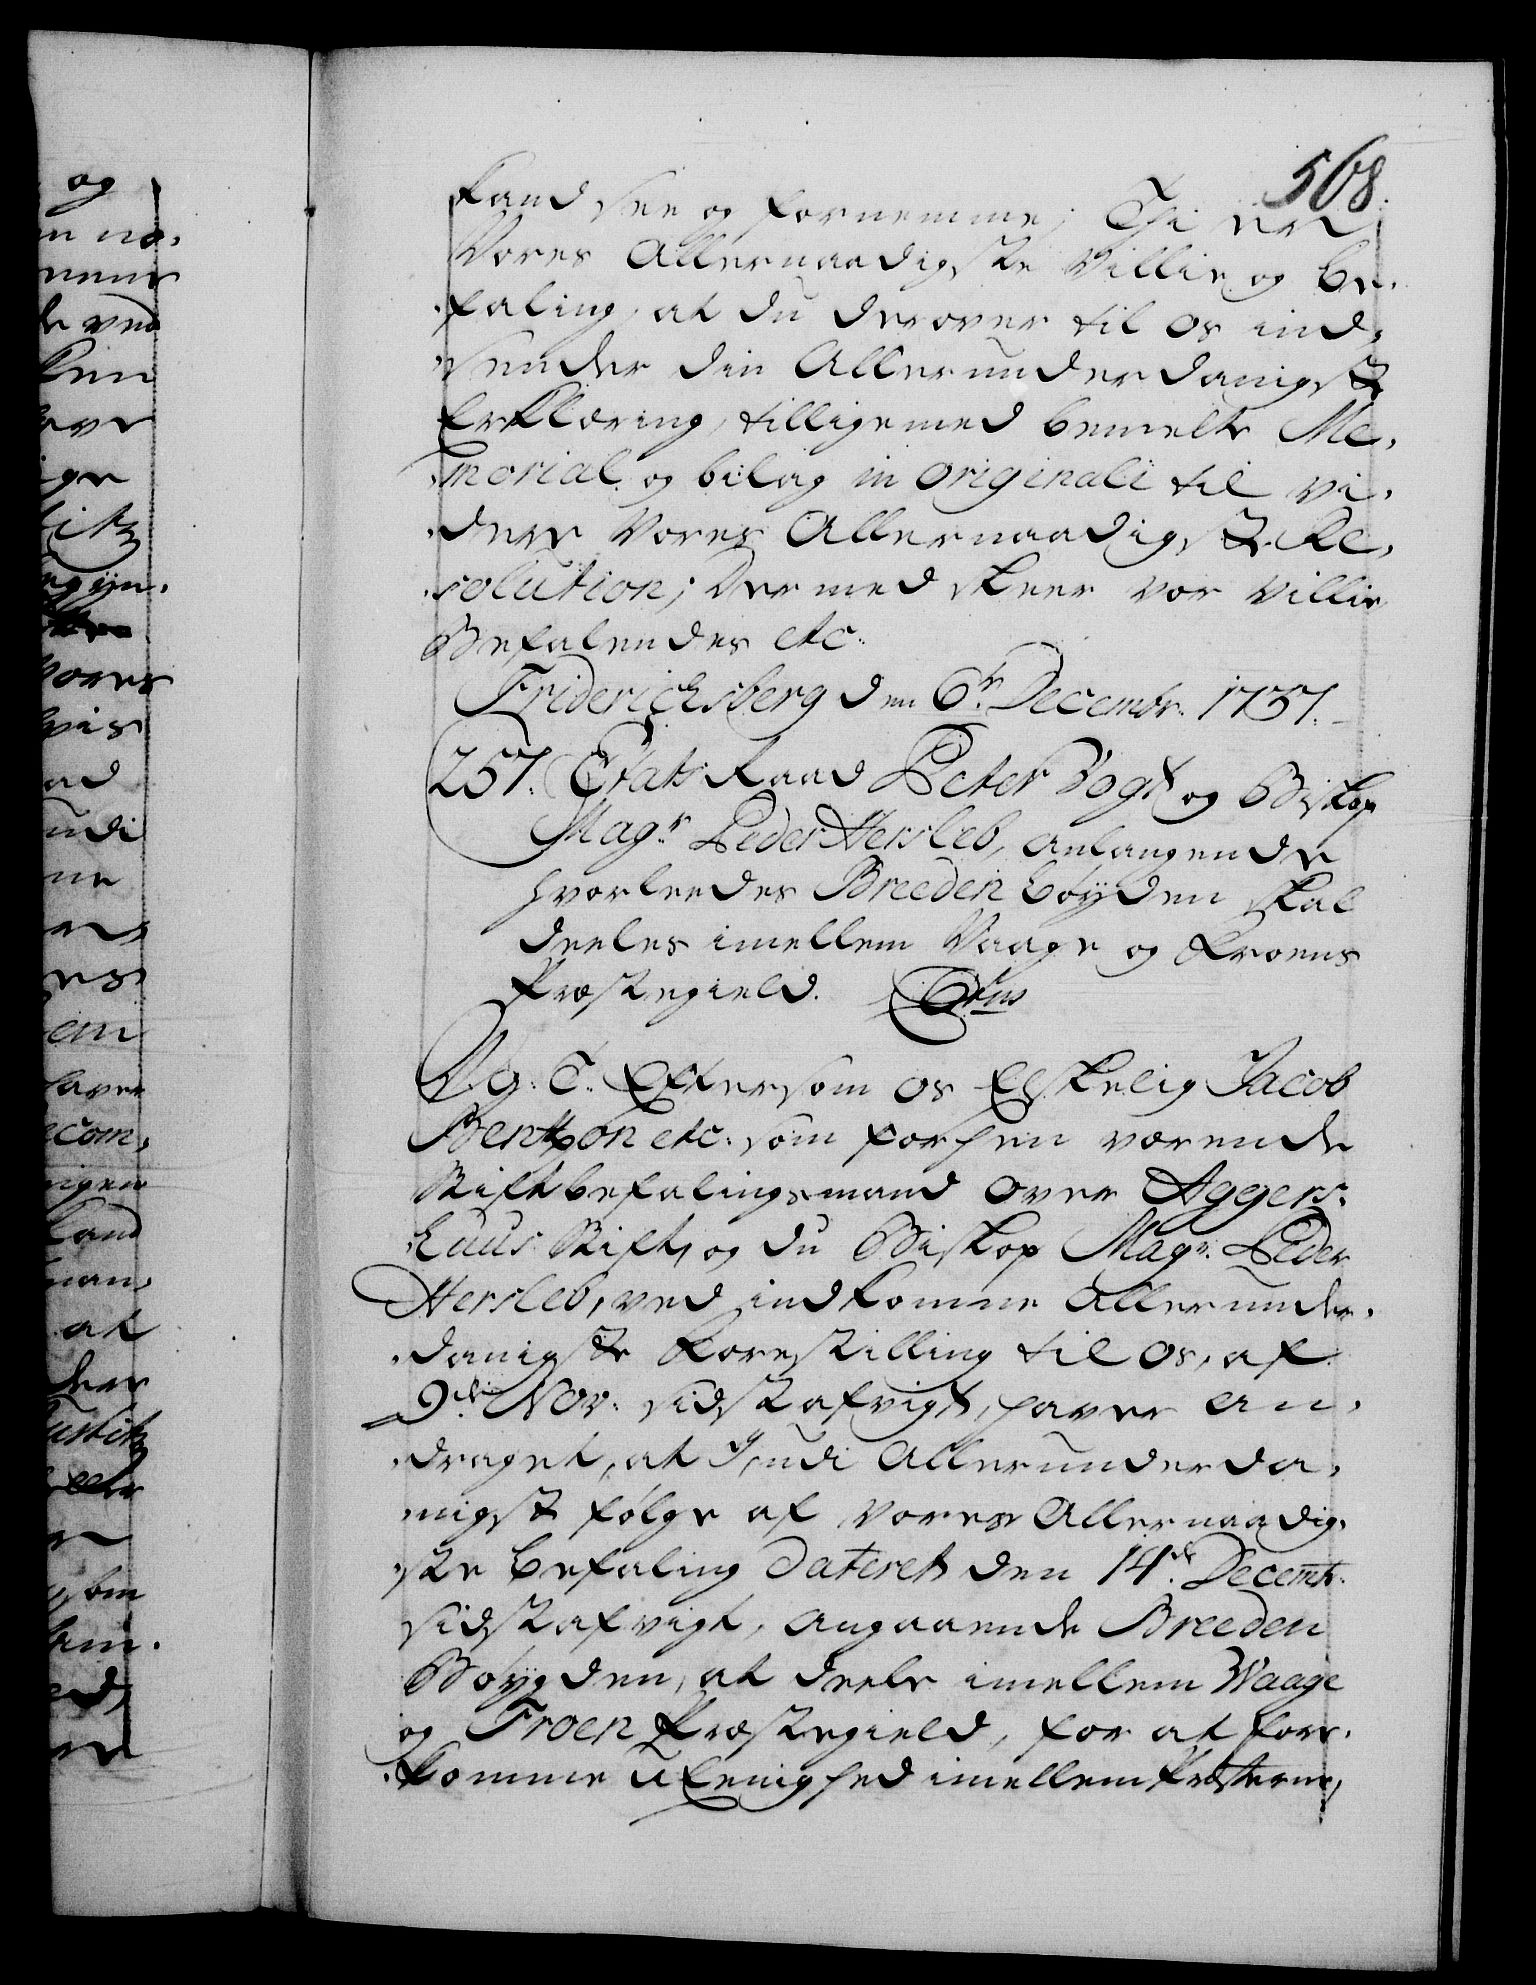 568.
kand see og fornemme; Thi er
Vores Allernaadigste Villie og be-
faling, at du derover til os ind-
sender din Allerunderdanigst
Erklæring, tilligemed bemelte Me-
morial og bilag in originali til vi-
dere Vores Allernaadigste Re-
solution; Dermed skeer vor villie
Befalendes etc.
Friderichsberg den 6te Decembr. 1737.
257. Etats Raad Peter Vogt og Biskop
Magr Peder Hersleb, anlangende
hvorleedes Breeden bøyden skal
deeles imellem Vaage og Froens
Præstegield.
V. G. T. Eftersom os Elskelig Jacob
Bentzon etc. som forhen værende
Stiftbefalingsmand over Aggers-
huus Stift, og du Biskop Magr. Peder
Hersleb, ved indkomne Allerunder-
danigste Forestilling til Os, af
9de Nov. sidst afvigt, haver an-
draget, at I, udi Allerunderda-
nigst følge af Vores Allernaadig-
ste befaling dateret den 14de Decembr.
sidst afvigt, angaaende Breeden
Bøygden, at deele imellem Waage
og Froen Præstegield, for at fore-
komme u-Eenighed imellem Præsterne,
og
ved
Kien
lige
vores
vis
ad
udi
ne
res
haver
com-
kand
at
som